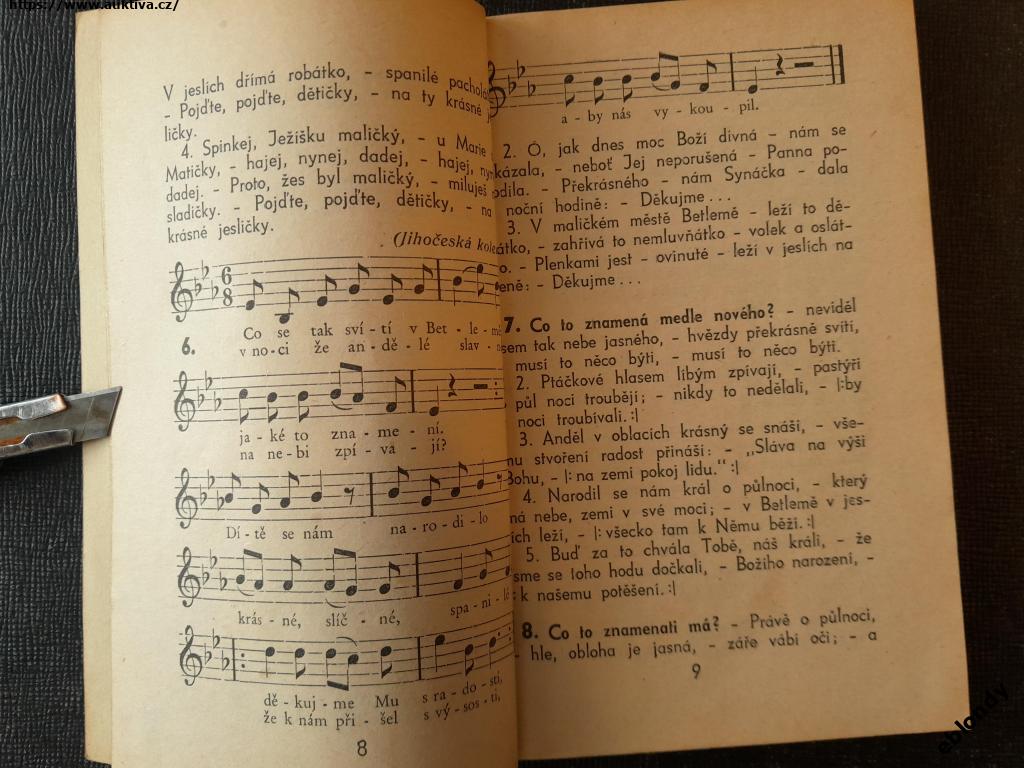 https://www.auktiva.cz/
V jeslích dřímá robátko, – spanilé
– Pojďte, pojďte, dětičky, – na ty krásné
ličky.
4. Spinkej, Ježíšku maličký, – u Marie
Matičky, – hajej, nynej, dadej, – hajej,
dadej. – Proto, žes byl maličký, – miluješ
sladičky. – Pojďte, pojďte, dětičky, – na
krásné jesličky.
(Jihočeská
6 8
6.
Co se tak sví - tí v Bet - le -
v no - ci že an - dě - lé slav
ja - ké to zna - me - ní.
na ne - bi zpí - va - jí?
Dí - tě se nám na - ro - di - lo
krás - né, slíč - né, spa - ni -
dě - kuj - me Mu s ra - do - sti,
že k nám při - šel s vý - sos - ti,
8
a - by nás vy - kou - pil.
2. Ó, jak dnes moc Boží divná – nám se
kázala, – neboť Jej neporušená – Panna po-
dila. – Překrásného – nám Synáčka – dala
noční hodině: – Děkujme . . .
3. V maličkém městě Betlemě – leží to dě-
átko, – zahřívá to nemluvňátko – volek a oslát-
o. – Plenkami jest – ovinuté – leží v jeslích na
eně: – Děkujme . . .
7. Co to znamená medle nového? – neviděl
sem tak nebe jasného, – hvězdy překrásně svítí,
musí to něco býti, – musí to něco býti.
2. Ptáčkové hlasem libým zpívají, – pastýři
půl noci troubějí; – nikdy to nedělali, – |:by
noci troubívali.:|
3. Anděl v oblacích krásný se snáší, – vše-
mu stvoření radost přináší: – „Sláva na výši
Bohu, – |: na zemi pokoj lidu." :|
4. Narodil se nám král o půlnoci, – který
má nebe, zemi v své moci; – v Betlemě v jes-
ích leží, – |: všecko tam k Němu běží. :|
5. Buď za to chvála Tobě, náš králi, – že
sme se toho hodu dočkali, – Božího narození, –
: k našemu potěšení. :|
8. Co to znamenati má? – Právě o půlnoci,
– hle, obloha je jasná, – záře vábí oči; – a
9
eblondy